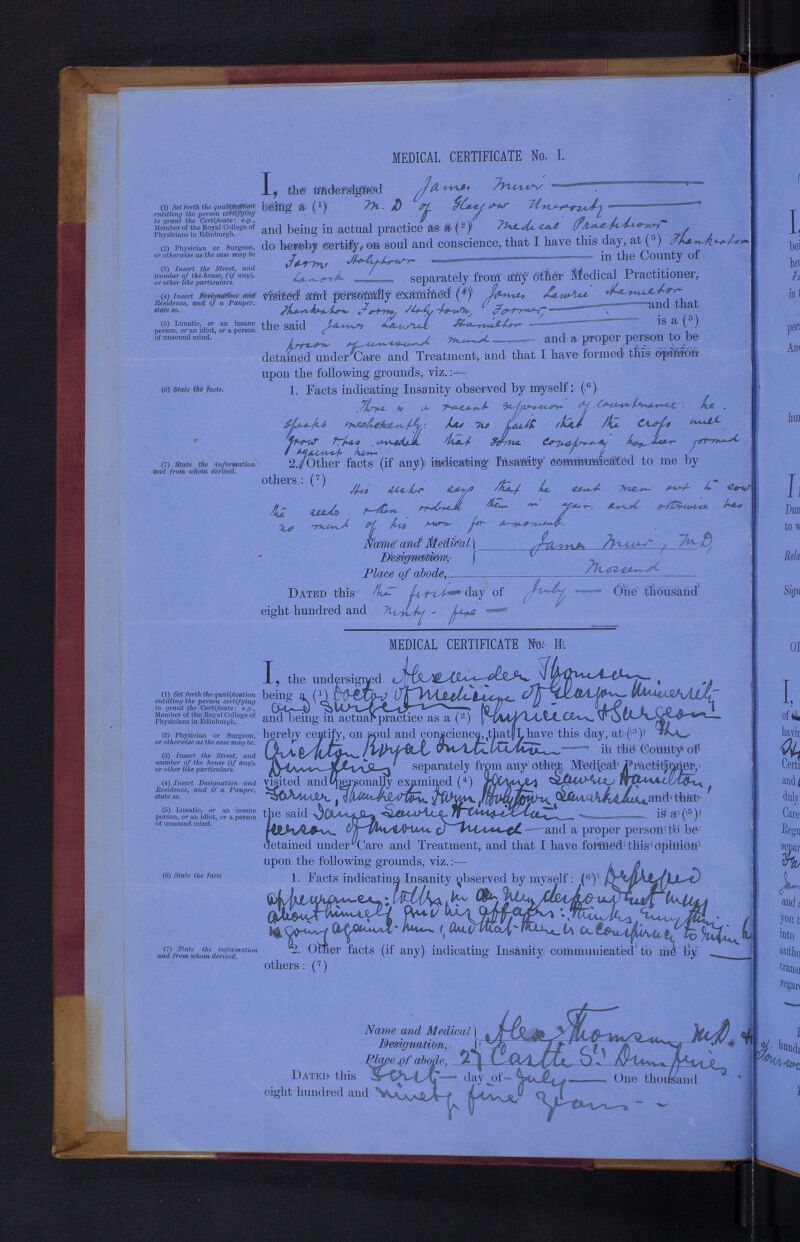 MEDICAL CERTIFICATE No. I.
I, the undersigned James Muir
(1) Set forth the qualification
entitling the person certifying
to grant the Certificate: e.g.,
Member of the Royal College of
Physicians in Edinburgh.
being a (1) M. D of Glasgow University
and being in actual practice as a (2) Medical Practitioner
(2) Physician or Surgeon,
or otherwise as the case may be
do hereby certify, on soul and conscience, that I have this day, at (3) Thankerton
Farm, Holytown in the County of
(3) Insert the Street, and
number of the house, (if any),
or other like particulars.
Lanark separately from any other Medical Practitioner,
(4) Insert Designation and
Residence, and if a Pauper,
state so.
visited and personally examined (4) James Lawrie Hamilton
Thankerton Farm, Holytown, Farmer, and that
(5) Lunatic, or an insane
person, or an idiot, or a person
of unsound mind.
the said James Lawrie Hamilton is a (5)
person of unsound mind and a proper person to be
detained under Care and Treatment, and that I have formed this opinion
upon the following grounds, viz.:—
(6) State the facts.
1. Facts indicating Insanity observed by myself: (6)
There is a vacant expression of countenance: he
speaks incoherently: has no faith that the crops will
grow & has that some conspiracy has been formed
against him
(7) State the information
and from whom derived.
2. Other facts (if any) indicating Insanity communicated to me by
others: (7)
His sister says that he sent men out to sow
the seeds then ordered them in again. and otherwise has
no mind of his own for a moment.
Name and Medical
Designation,
James Muir, M.D,
Place of abode, Mossend
DATED this the first day of July One thousand
eight hundred and ninty-five
MEDICAL CERTIFICATE No. II.
I, the undersigned Alexander Thomson,
(1) Set forth the qualification
entitling the person certifying
to grant the Certificate: e.g.,
Member of the Royal College of
Physicians in Edinburgh.
being a (1) Doctor of Medicine of Glasgow University
and Surgeon
and being in actual practice as a (2) Physician & Surgeon
(2) Physician or Surgeon,
or otherwise as the case may be.
hereby certify, on soul and conscience, that I have this day, at (3) The
Crichton Royal Institution in the County of
(3) Insert the Street, and
number of the house (if any),
or other like particulars.
Dumfries separately from any other Medical Practitioner,
(4) Insert Designation and
Residence, and if a Pauper,
state so.
visited and personally examined (4) James Lawrie Hamilton,
Farmer, Thankerton Farm, Holytown, Lanarkshire and that
(5) Lunatic, or an insane
person, or an idiot, or a person
of unsound mind.
the said James Lawrie Hamilton is a (5)
person of unsound mind and a proper person to be
detained under Care and Treatment, and that I have formed this opinion
upon the following grounds, viz.:—
(6) State the facts
1. Facts indicating Insanity observed by myself: (6) Depressed
appearance: talks in a very despondent way
about himself and his affairs: thinks everything
is going against him, and that there is a conspiracy to ruin h
(7) State the information
and from whom derived.
2. Other facts (if any) indicating Insanity communicated to me by
others: (7)
Name and Medical
Designation,
Alex Thomson M.D. &
Place of abode, 27 Castle St. Dumfries
DATED this first day of July One thousand
eight hundred and ninety five years